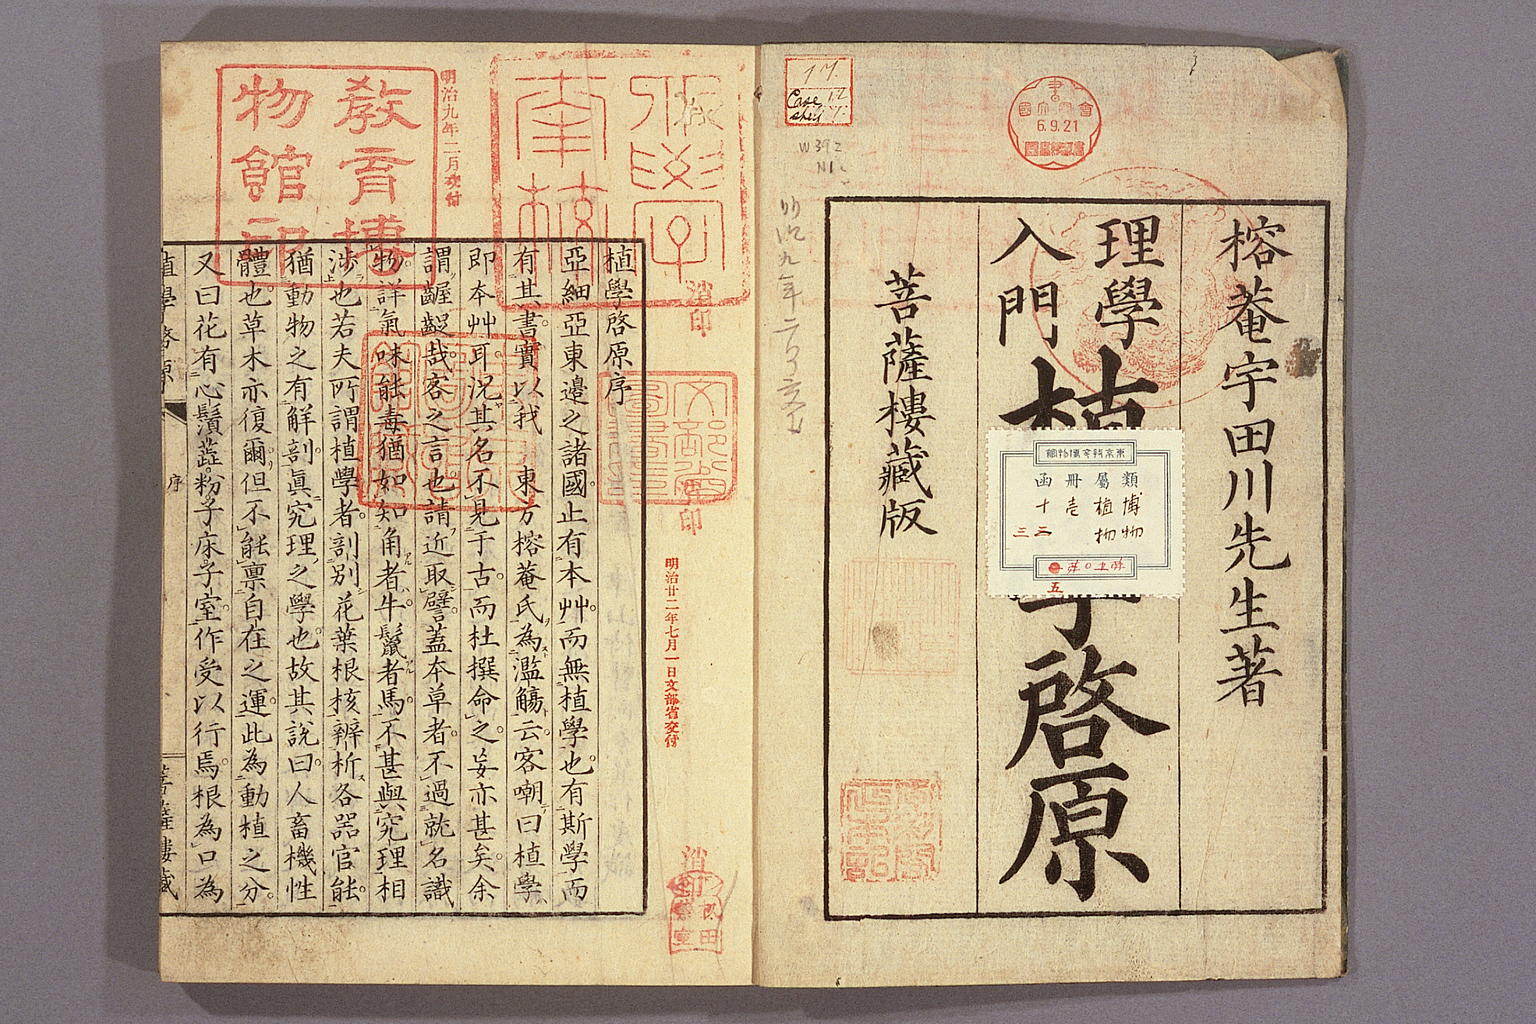 榕菴宇田川先生著
理學
入門
植學啓原
菩薩樓藏版
17.
Case 12
6.9.21
W392
N1
類屬冊函
博物
植物
壱
十
五
植學啓原序
亞細亞東邊之諸國止有本艸而無植學也有斯學而
有其書實以我 東方榕菴氏為濫觴云客嘲曰植學
即本艸耳況其名不見于古而杜撰命之妄亦甚矣余
謂齷齪哉客之言也請近取譬蓋本草者不過就名識
物詳氣味能毒猶如知角者牛鬣者馬不甚與究理相
涉也若夫所謂植學者剖別花葉根核辨析各器官能
猶動物之有解剖眞究理之學也故其說曰人畜機性
體也草木亦復爾但不能稟自在之運此為動植之分
又曰花有心鬚蕋粉子床子室作受以行焉根為口為
植學啓原
序
菩薩樓藏
敎育博物館印
明治九年二月交付
明治廿二年七月一日文部省交付
消印
消印
消印